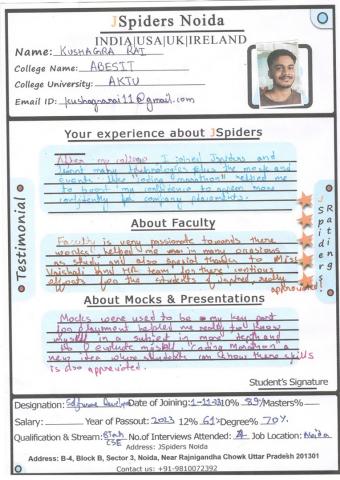 JSpiders Noida
INDIA|USA|UK|IRELAND
Name: KUSHAGRA RAI
College Name: ABESIT
College University: AKTU
Email ID: kushagrarai11@gmail.com
Your experience about JSpiders
After my college I joined Jspiders and
learnt many technologies plus the mock and
events like "coding marathon" helped me
to boost my confidence to appear more
confidently for company placements.
About Faculty
Faculty is very passionate towards there
works helped me in many occasions
as study and also special thanks to Miss
Vaishali and HR team for there
efforts for the students of Jspiders really
appreciated.
Testimonial
JSpiders
Rating
About Mocks & Presentations
Mocks were used to be my key part
for placement helped me really to know
myself in a subject in more depth and
to evaluate myself. Coding Marathon a
new idea where students can show there skills
is also appreciated.
Student's Signature
Designation: Software Developer Date of Joining: 1-11-23 10% 89% Masters%
Salary: Year of Passout: 2023 12% 61% Degree% 70%
Qualification & Stream: BTech CSE No.of Interviews Attended: 4 Job Location: Noida
Address: JSpiders Noida
Address: B-4, Block B, Sector 3, Noida, Near Rajnigandha Chowk Uttar Pradesh 201301
Contact us: +91-9810072392